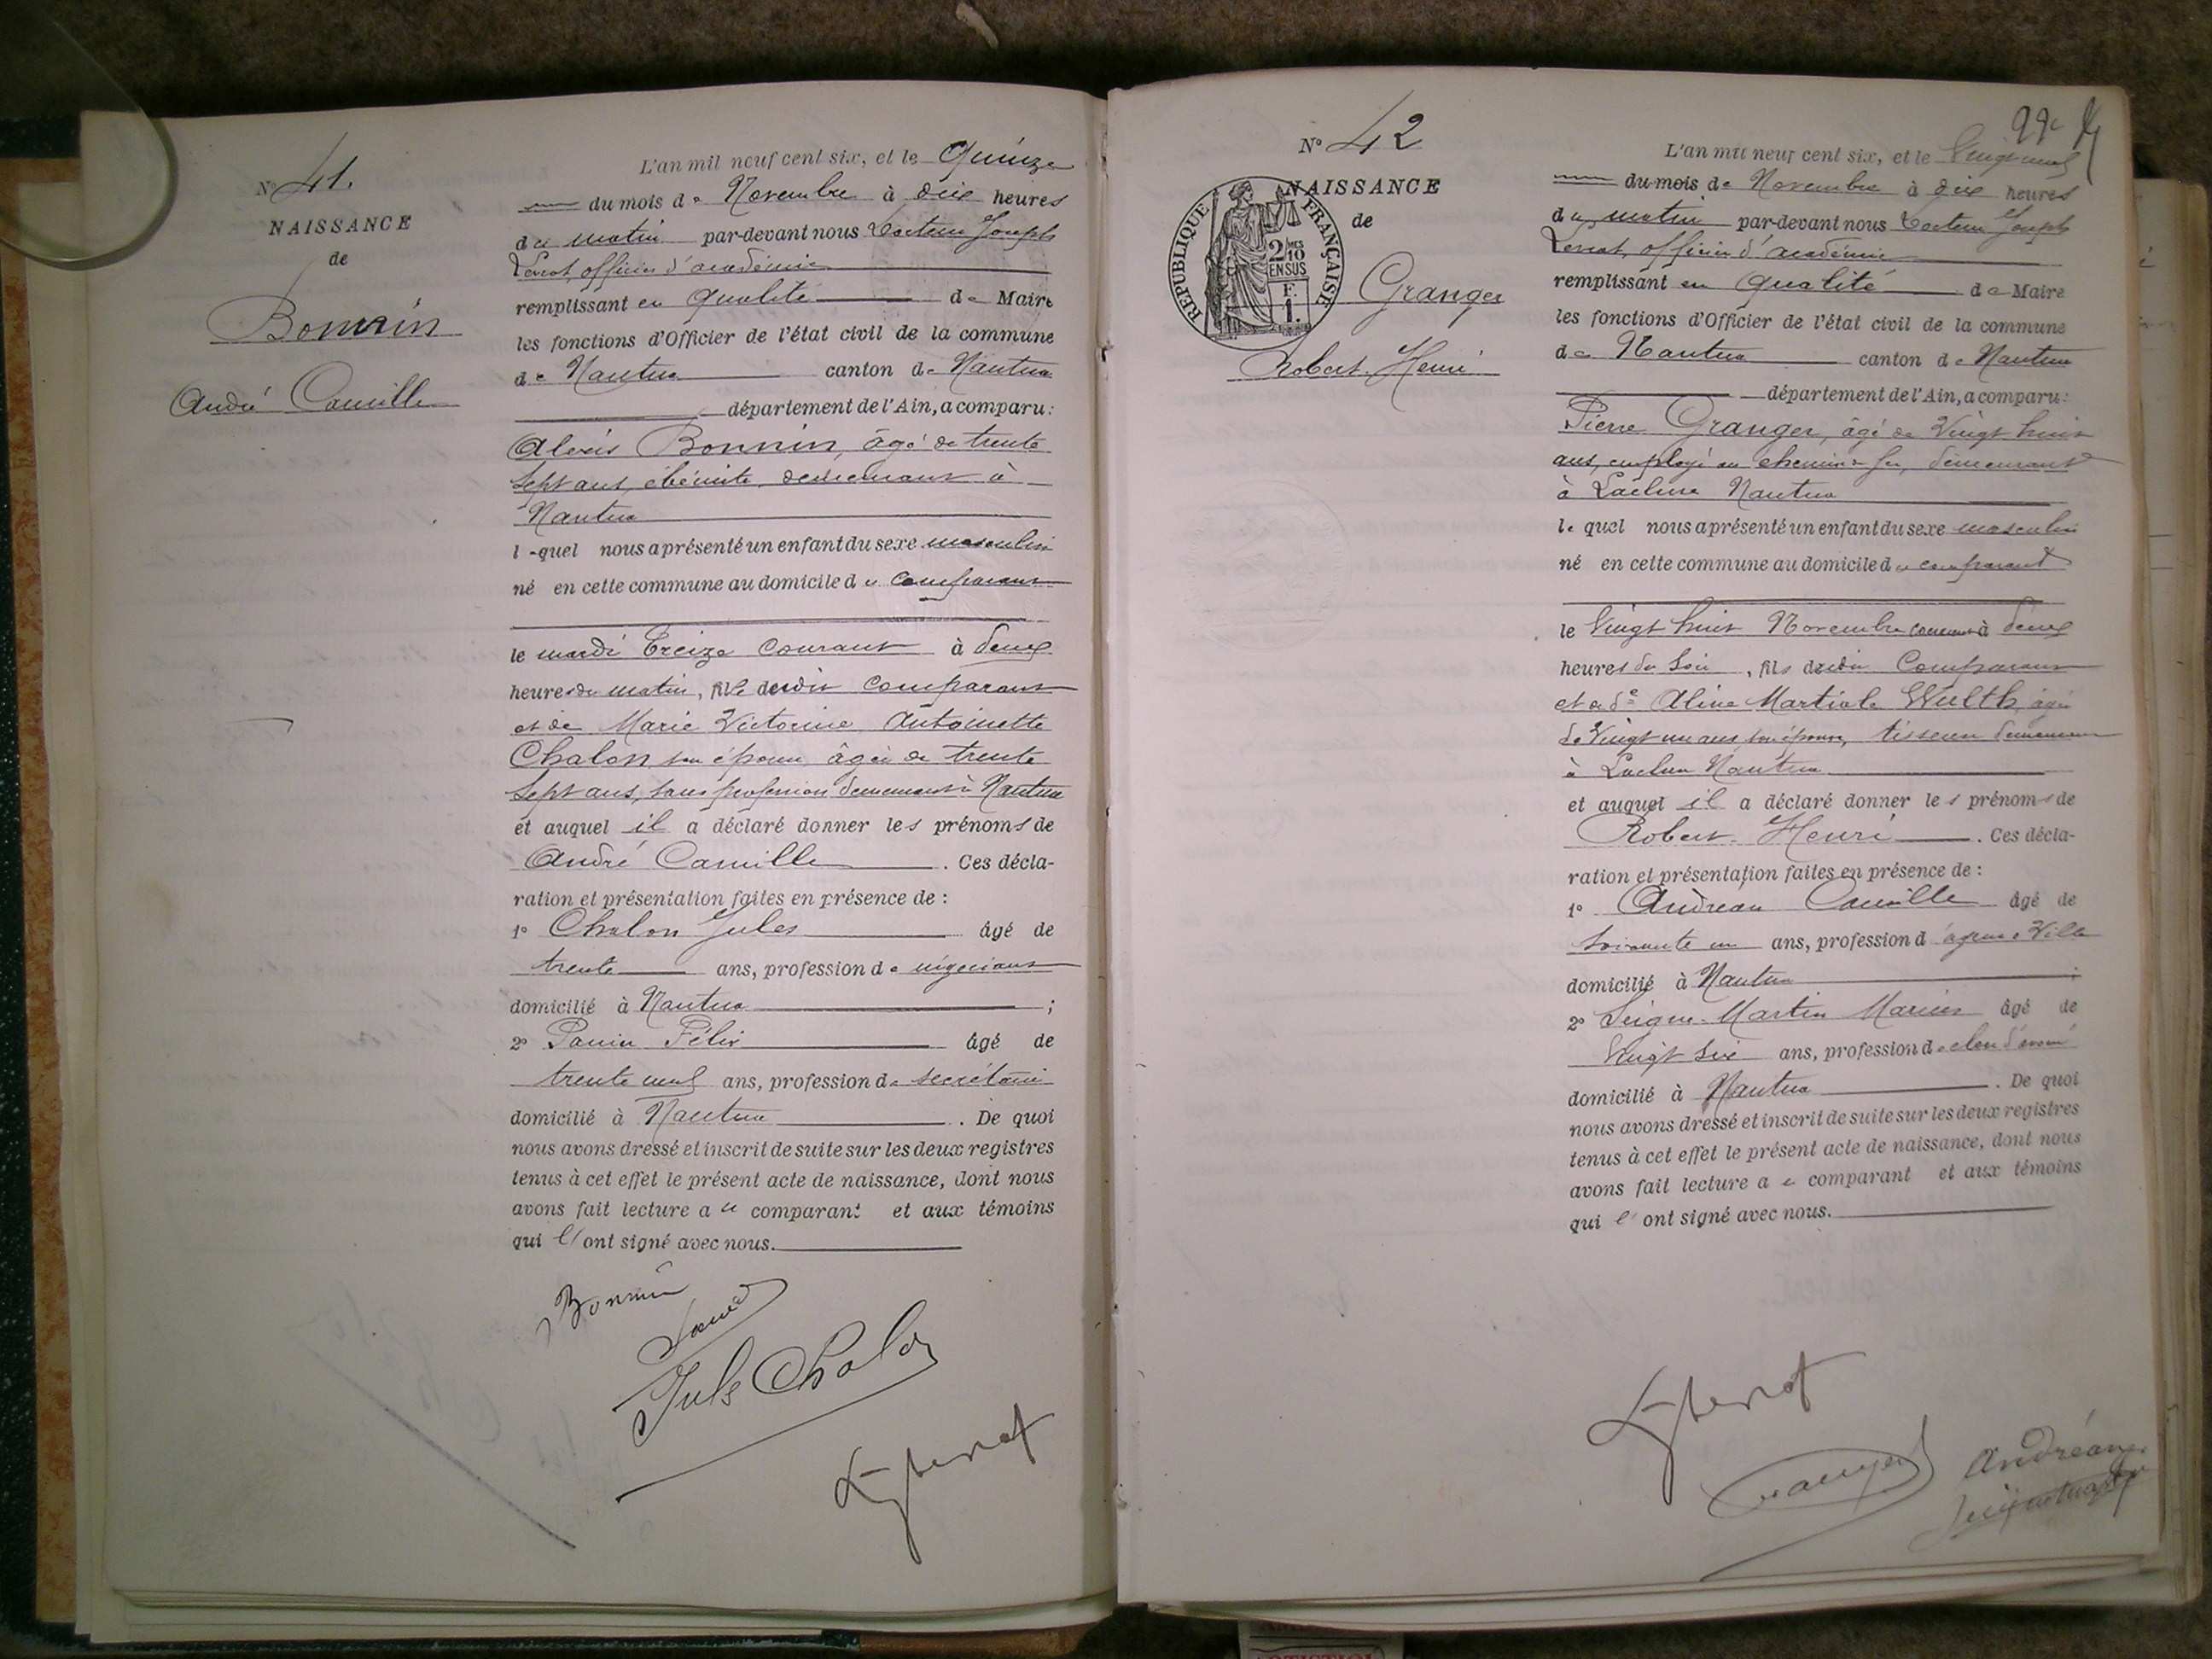 N° 41.
NAISSANCE
de
Bonnin
André Camille
L'an mil neuf cent six, et le Quinze
du mois de Novembre à dix heures
du matin par-devant nous Docteur Joseph
officier d'académie
remplissant en qualité de Maire
les fonctions d'Officier de l'état civil de la commune
de Nantua canton de Nantua
département de l'Ain, a comparu:
Alexis Bonnin, âgé de trente
sept ans, ébéniste, demeurant à
Nantua
lequel nous a présenté un enfant du sexe masculin
né en cette commune au domicile du comparant
le mardi treize courant à deux
heures du matin, fils dudit comparant
et de Marie Victorine Antoinette
Chalon son épouse âgée de trente
sept ans, sans profession demeurant à Nantua
et auquel il a déclaré donner les prénoms de
André Camille . Ces décla-
ration et présentation faites en présence de :
1° Chalon Jules âgé de
trente ans, profession de négociant
domicilié à Nantua ;
2° Félix âgé de
trente neuf ans, profession de secrétaire
domicilié à Nantua . De quoi
nous avons dressé et inscrit de suite sur les deux registres
tenus à cet effet le présent acte de naissance, dont nous
avons fait lecture au comparant et aux témoins
qui l'ont signé avec nous.
Bonnin
Jules Chalon
N° 42
NAISSANCE
de
RÉPUBLIQUE FRANÇAISE
2/10
EN SUS
F.
1.
Granger
Robert Henri
L'an mil neuf cent six, et le Vingt neuf
du mois de Novembre à dix heures
du matin par-devant nous Docteur Joseph
officier d'académie
remplissant en qualité de Maire
les fonctions d'Officier de l'état civil de la commune
de Nantua canton de Nantua
département de l'Ain, a comparu:
Pierre Granger, âgé de Vingt huit
ans, employé au chemin de fer, demeurant
à Lacluse Nantua
lequel nous a présenté un enfant du sexe masculin
né en cette commune au domicile du comparant
le Vingt huit Novembre courant à deux
heures du soir, fils dudit comparant
et de de Aline Martiale âgée
de Vingt un ans son épouse, tisseuse demeurant
à Lacluse Nantua
et auquel il a déclaré donner les prénoms de
Robert Henri . Ces décla-
ration et présentation faites en présence de :
1° Andréan Camille âgé de
soixante un ans, profession d'agent de Ville
domicilié à Nantua ;
2° Seigne-Martin Marius âgé de
Vingt six ans, profession de clerc d'avoué
domicilié à Nantua . De quoi
nous avons dressé et inscrit de suite sur les deux registres
tenus à cet effet le présent acte de naissance, dont nous
avons fait lecture au comparant et aux témoins
qui l'ont signé avec nous.
Granger
Andréan